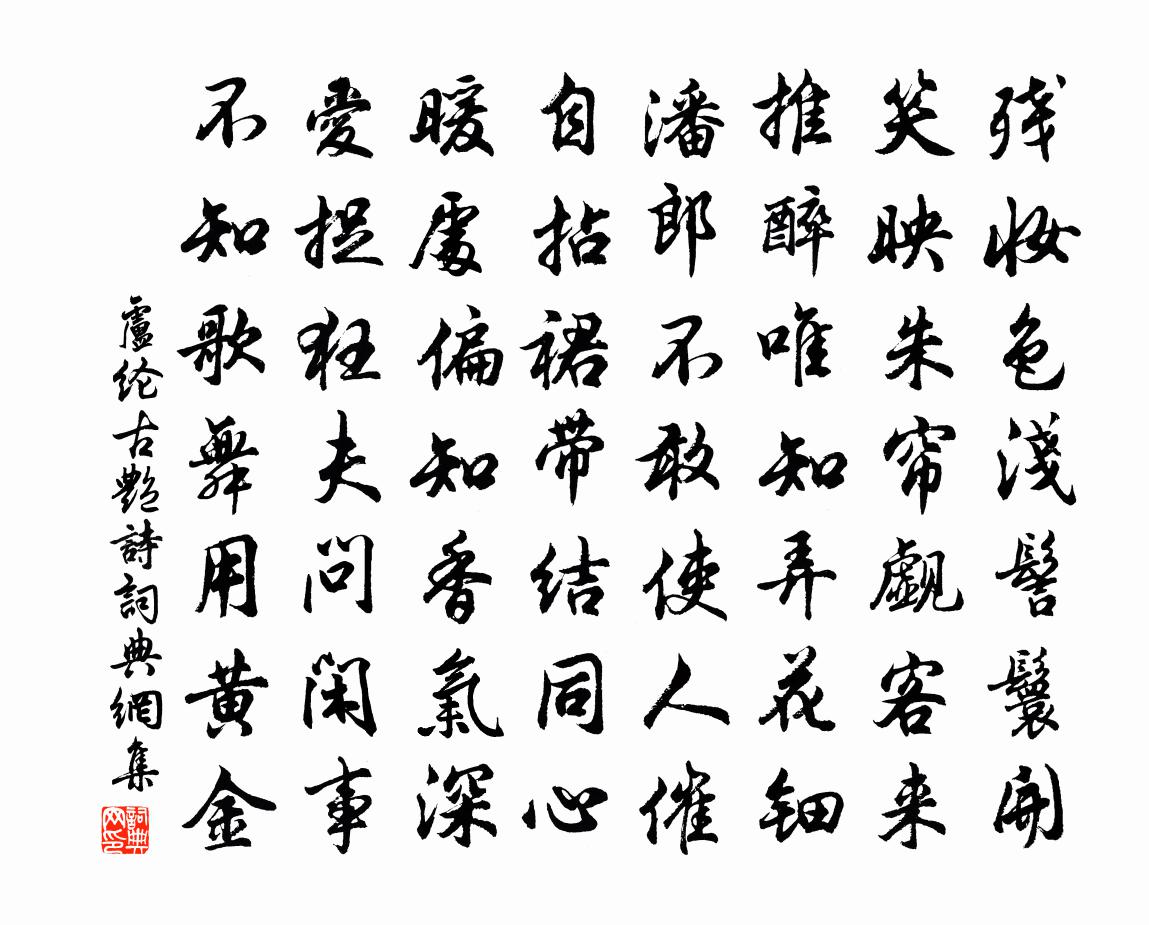 残妆色淺髻鬟開
笑映朱帘覷客来
推醉唯知弄花钿
潘郎不敢使人催
自拈裙带结同心
暖處偏知香氣深
愛捉狂夫问闲事
不知歌舞用黄金
盧纶古艷詩詞典網集
詞典网印